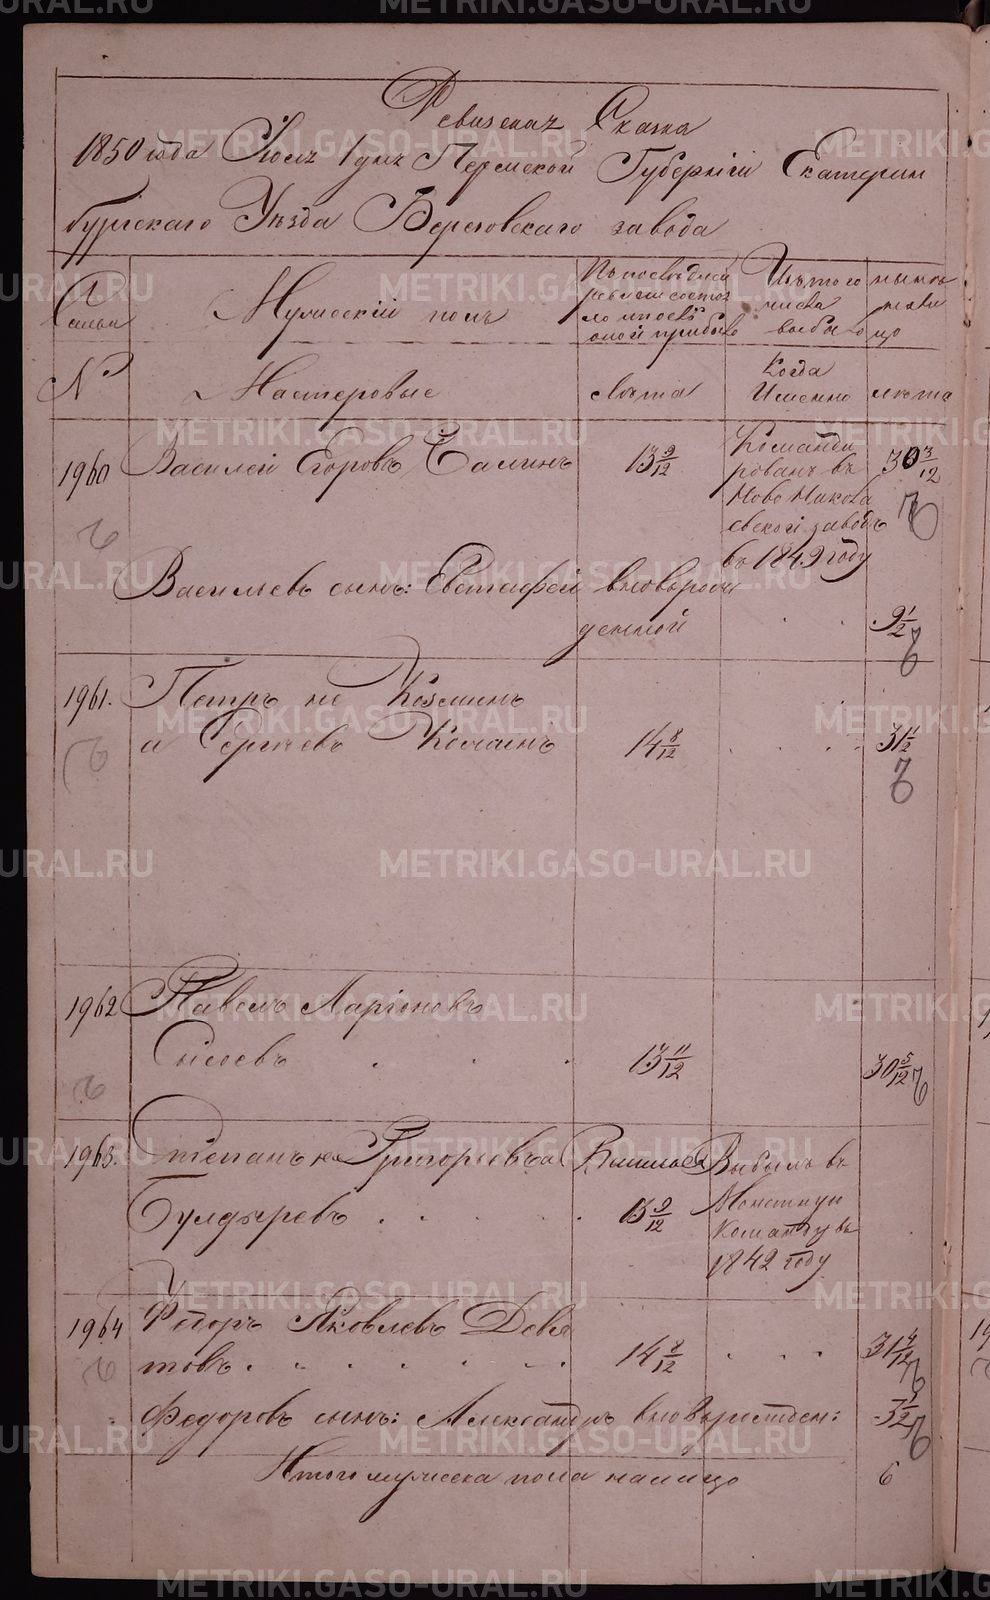 Ревизская Сказка
1850 года Июля 1 дня Пермской Губерніи Екатерин
бургскаго Уѣзда Березовскаго завода
Мужескій полъ
По последней
ревизіи состоя
ло и послѣ
оной прибыло
Изъ того
числа
выбыло
ныне
на ли
цо
№
Мастеровые
Лѣта
Когда
Именно
лѣта
1960
Василей Егоровъ Галинъ
13 9/12
Командированъ въ
Ново Никола
евской заводъ
въ 1849 году
30 3/12
Васильевъ сынъ: Евстафей вновьрож
денной
9 1/2
1961.
Петръ не Козминъ
а Сергѣевъ
14 8/12
31 1/2
1962
Павелъ Ларіоновъ
Сысоевъ
13 11/12
30 5/12
1963.
Степанъ не Григорьевъ а
Булдыревъ
13 9/12
Выбылъ въ
команду въ
1842 году
1964
Федоръ Яковлевъ Девя
товъ
14 8/12
31 4/12
Федоровъ сынъ: Александръ вновьрожден:
Итого мужеска пола налицо
6
METRIKI.GASO-URAL.RU